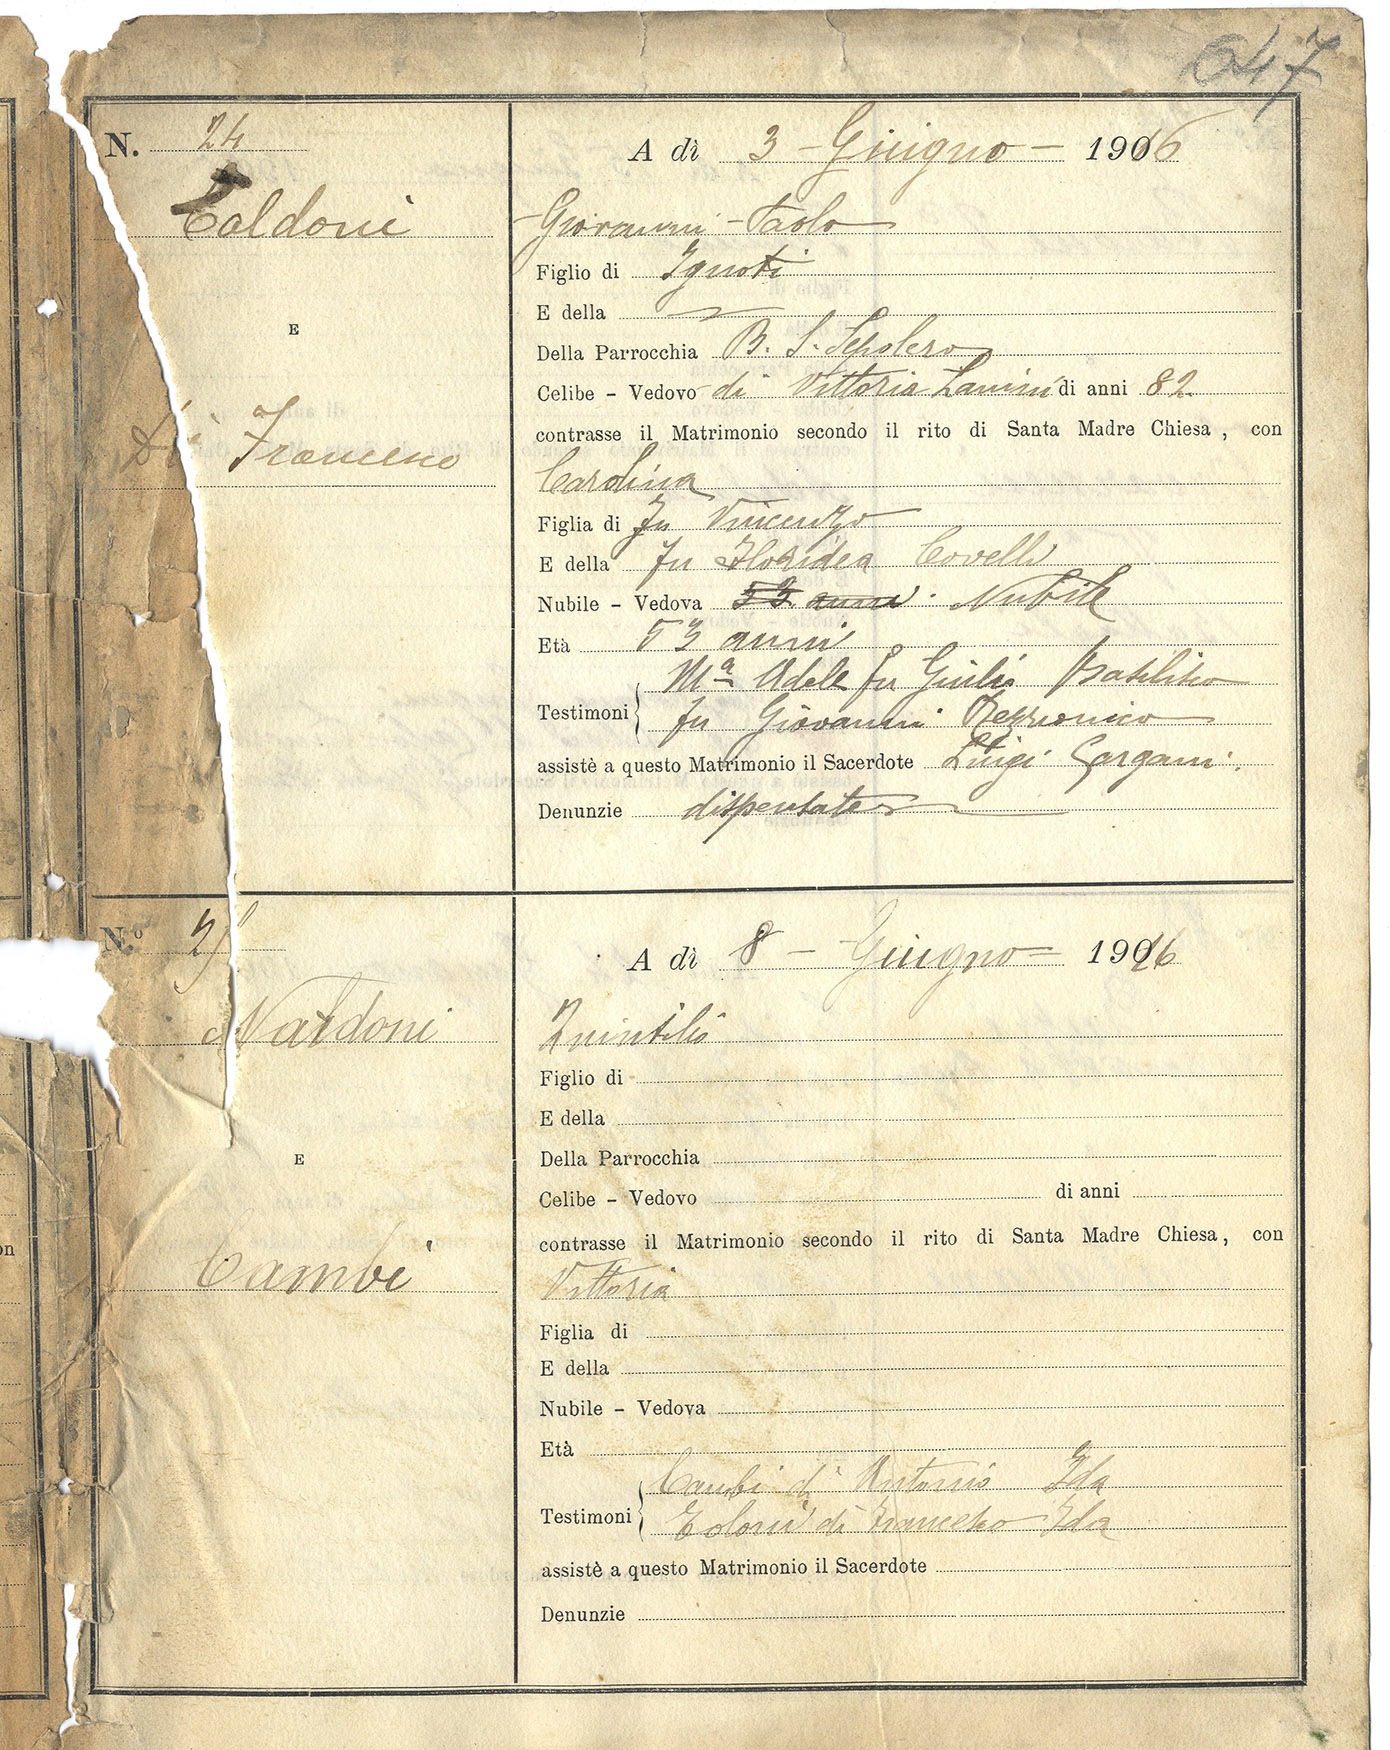 647
N. 24
A dì 3 - Giugno - 1906
Coldoni
Giovanni - Paolo
Figlio di Ignoti
E della
E
Della Parrocchia B. S. Sepolcro
Celibe - Vedovo di Vittoria Lanini di anni 82
contrasse il Matrimonio secondo il rito di Santa Madre Chiesa, con
Di Francesco
Carolina
Figlia di fu Vincenzo
E della fu Floridea Covelli
Nubile - Vedova 53 anni . Nubile
Età 53 anni
Mª Adele fu Giulio Basilico
Testimoni
fu Giovanni Rezzonico
assistè a questo Matrimonio il Sacerdote Luigi Gargani.
Denunzie dispensate
N.º 25
A dì 8 - Giugno 1916
Nardoni
Quintilio
Figlio di
E della
Della Parrocchia
E
Celibe - Vedovo di anni
contrasse il Matrimonio secondo il rito di Santa Madre Chiesa, con
Cambi
Vittoria
Figlia di
E della
Nubile - Vedova
Età
Cambi di Antonio Ida
Testimoni
di Francesco Ida
assistè a questo Matrimonio il Sacerdote
Denunzie
on